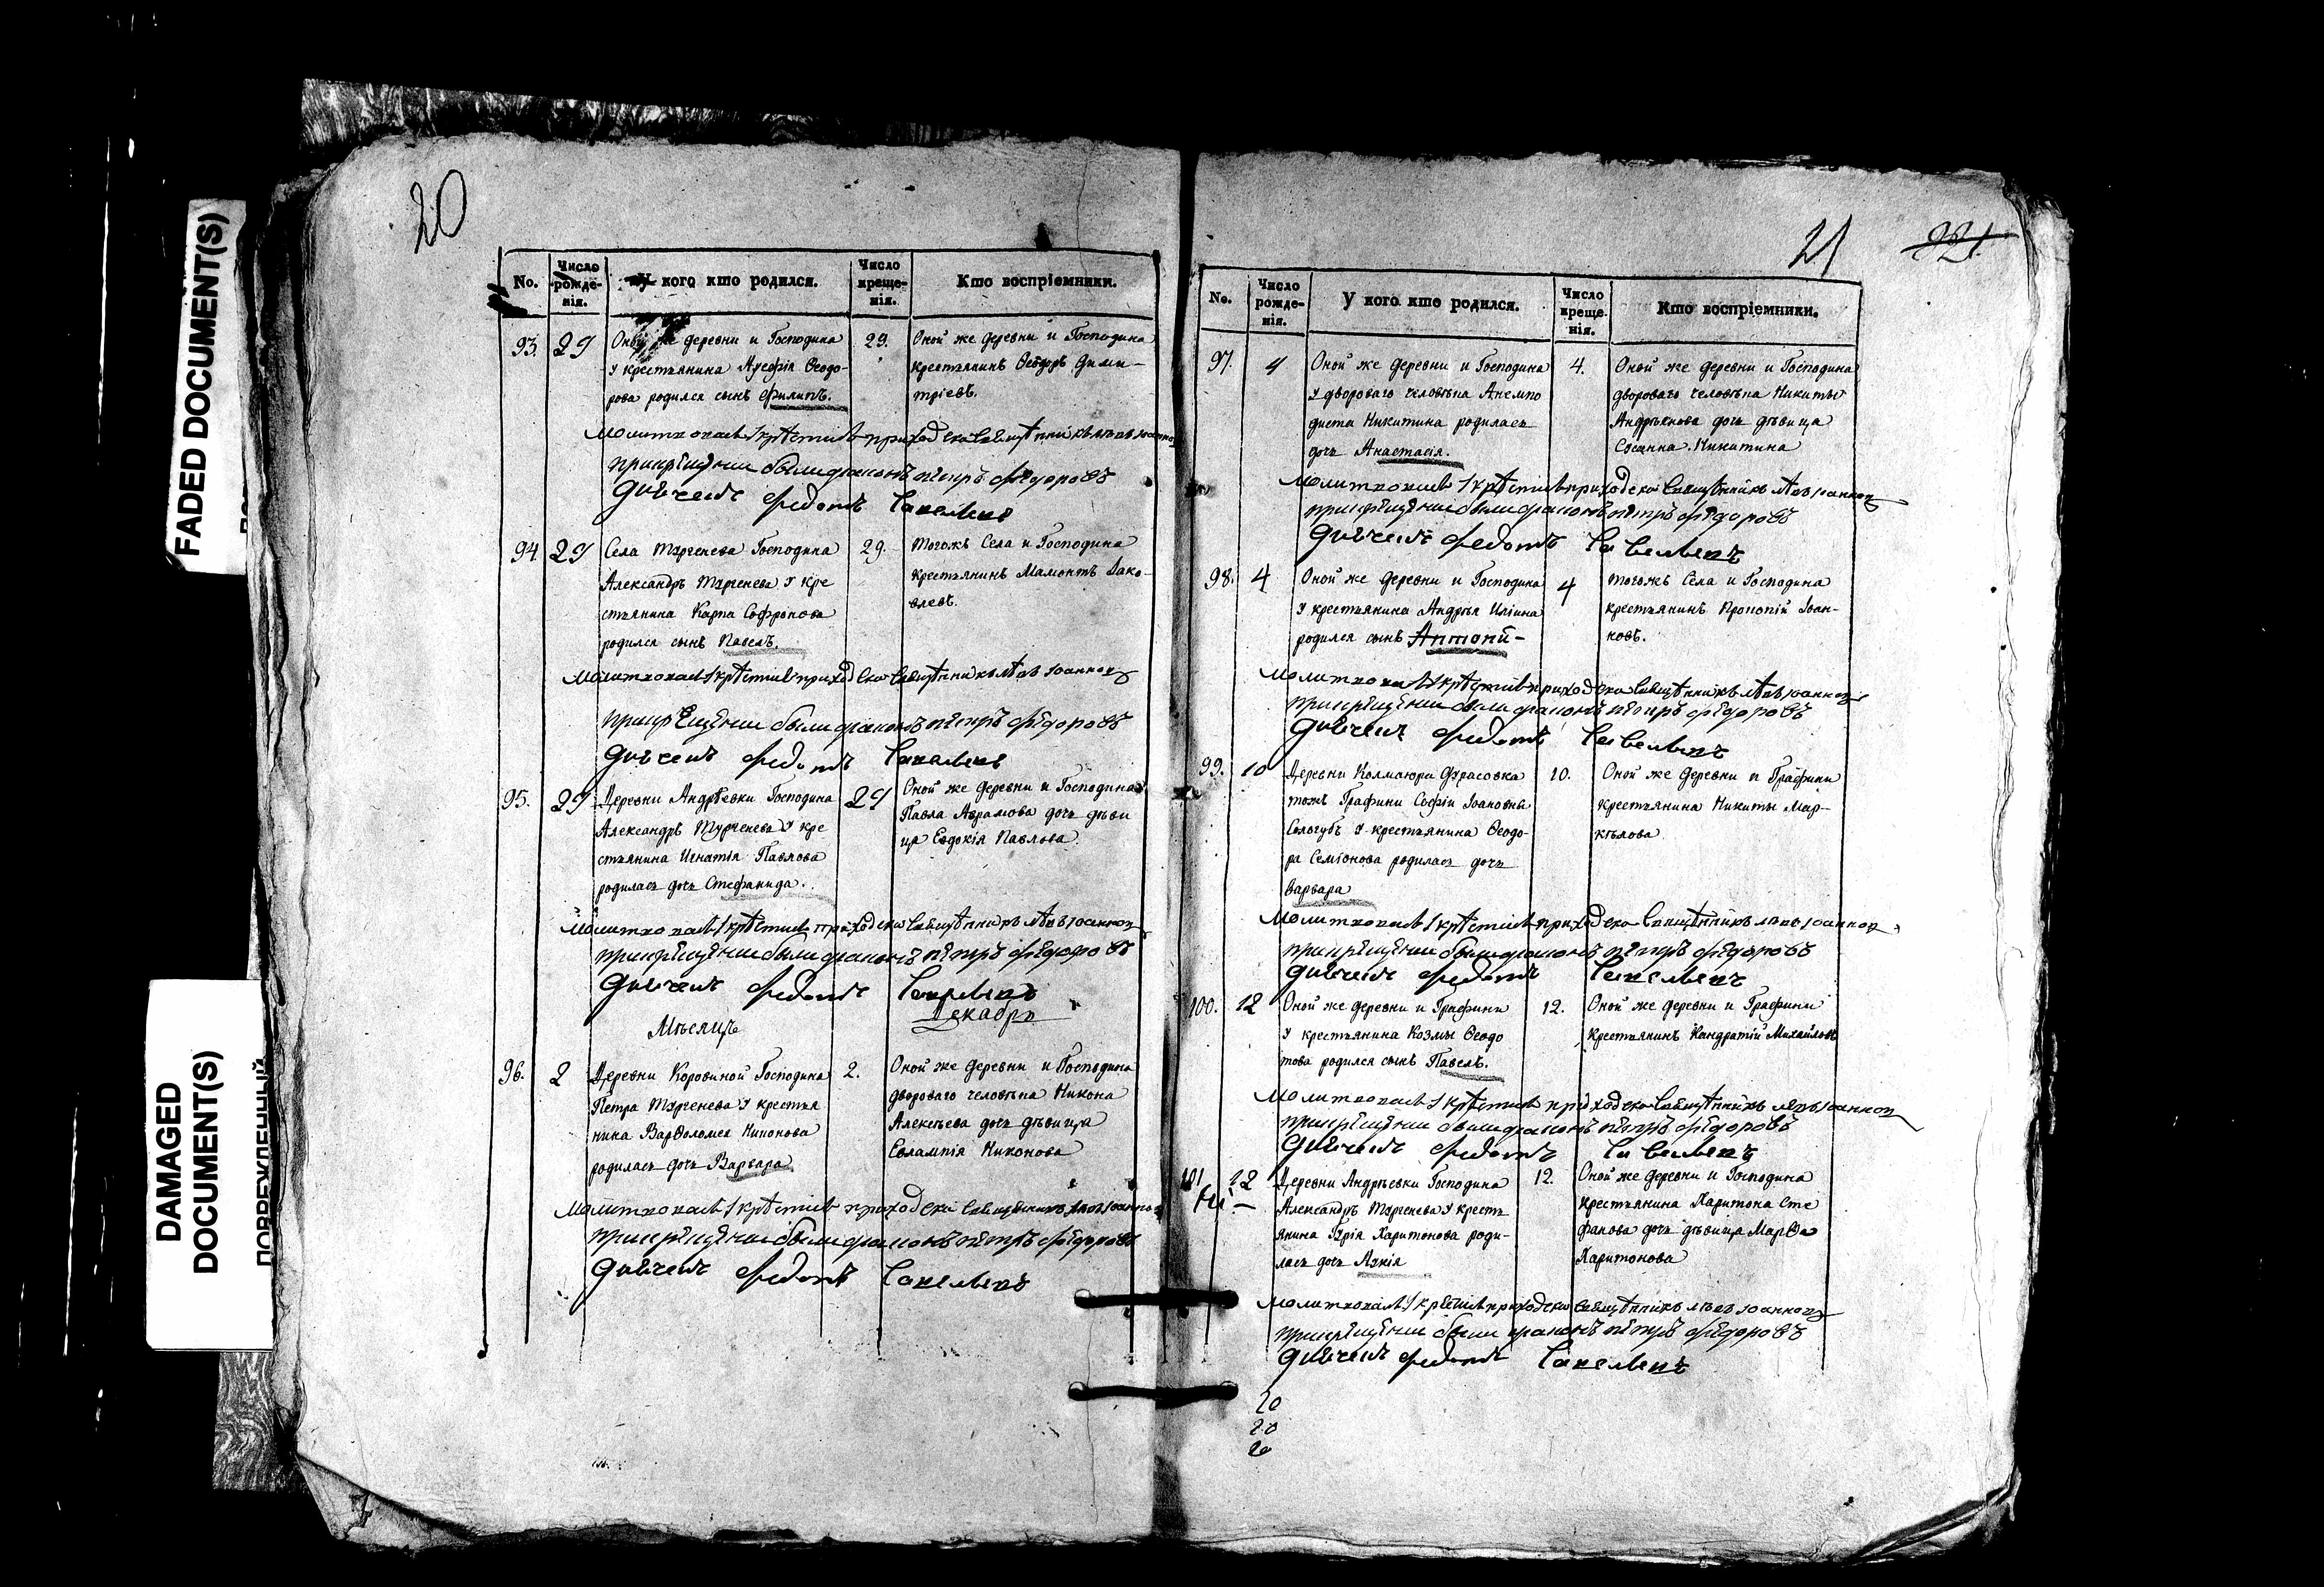 FADED DOCUMENT(S)
DAMAGED
DOCUMENT(S)
ПОВРЕЖДЕННЫЙ
20
No.
Число рожде-нія.
У кого кто родился.
Число креще-нія.
Кто воспріемники.
93.
29
Оной же деревни и Господина
у крестьянина Арефія Ѳеодо-
рова родился сынъ Филипъ.
29.
Оной же деревни и Господина
крестьянинъ Ѳеодоръ Дими-
тріевъ.
молитвовалъ и крѣстилъ приходской Священникъ Левъ Іоанновъ
при крѣщении были диаконъ Пѣтръ Фѣдоровъ
Дьячекъ Федотъ Савельевъ
94
29
Села Тургенева Господина
Александръ Тургенева у кре
стьянина Карпа Софронова
родился сынъ Павелъ.
29.
Тогожъ Села и Господина
крестьянинъ Мамонтъ Іако-
влевъ.
молитвовалъ и крѣстилъ приходской Священникъ Левъ Іоанновъ
при крѣщении были диаконъ Пѣтръ Фѣдоровъ
Дьячекъ Федотъ Савельевъ
95.
29
Деревни Андрѣевки Господина
Александръ Тургенева у кре
стьянина Игнатія Павлова
родилась дочь Стефанида.
29
Оной же деревни и Господина
Павла Абрамова дочь дѣви
ца Евдокія Павлова.
молитвовалъ и крѣстилъ приходской Священникъ Левъ Іоанновъ
при крѣщении были диаконъ Пѣтръ Фѣдоровъ
Дьячекъ Федотъ Савельевъ
Мѣсяцъ Декабрь
96.
2
Деревни Коровиной Господина
Петра Тургенева у крестья
нина Варѳоломея Никонова
родилась дочь Варвара.
2.
Оной же деревни и Господина
двороваго человѣка Никона
Алексѣева дочь дѣвица
Евлампія Никонова
молитвовалъ и крѣстилъ приходской Священникъ Левъ Іоанновъ
при крѣщении были диаконъ Пѣтръ Фѣдоровъ
Дьячекъ Федотъ Савельевъ
21
No.
Число рожде-нія.
У кого кто родился.
Число креще-нія.
Кто воспріемники.
97.
4
Оной же деревни и Господина
у двороваго человѣка Анемпо
диста Никитина родилась
дочь Анастасія.
4.
Оной же деревни и Господина
двороваго человѣка Никиты
дочь дѣвица
Сосанна Никитина
молитвовалъ и крѣстилъ приходской Священникъ Левъ Іоанновъ
при крѣщении были диаконъ Пѣтръ Фѣдоровъ
Дьячекъ Федотъ Савельевъ
98.
4
Оной же деревни и Господина
у крестьянина Андрѣя Иліина
родился сынъ Антоній
4
Тогожъ Села и Господина
крестьянинъ Прокопій Іоан-
новъ.
молитвовалъ и крѣстилъ приходской Священникъ Левъ Іоанновъ
при крѣщении были диаконъ Пѣтръ Фѣдоровъ
Дьячекъ Федотъ Савельевъ
99.
10
Деревни Колмаюри Дурасовка
тожъ Графини Софіи Іоанновны
Сологубъ у крестьянина Ѳеодо-
ра Семіонова родилась дочь
Варвара
10.
Оной же деревни и Графини
крестьянина Никиты Мар-
кѣлова
молитвовалъ и крѣстилъ приходской Священникъ Левъ Іоанновъ
при крѣщении были диаконъ Пѣтръ Фѣдоровъ
Дьячекъ Федотъ Савельевъ
100.
12
Оной же деревни и Графини
у крестьянина Козмы Ѳеодо
това родился сынъ Павелъ.
12.
Оной же деревни и Графини
крестьянинъ Кандратій Михайловъ
молитвовалъ и крѣстилъ приходской Священникъ Левъ Іоанновъ
при крѣщении были диаконъ Пѣтръ Фѣдоровъ
Дьячекъ Федотъ Савельевъ
101
12
Деревни Андрѣевки Господина
Александръ Тургенева у кресть
янина Гурія Харитонова роди-
лась дочь Лукія
12.
Оной же деревни и Господина
крестьянина Харитона Сте
фанова дочь дѣвица Марѳа
Харитонова
молитвовалъ и крѣстилъ приходской Священникъ Левъ Іоанновъ
при крѣщении были диаконъ Пѣтръ Фѣдоровъ
Дьячекъ Федотъ Савельевъ
20
20
20